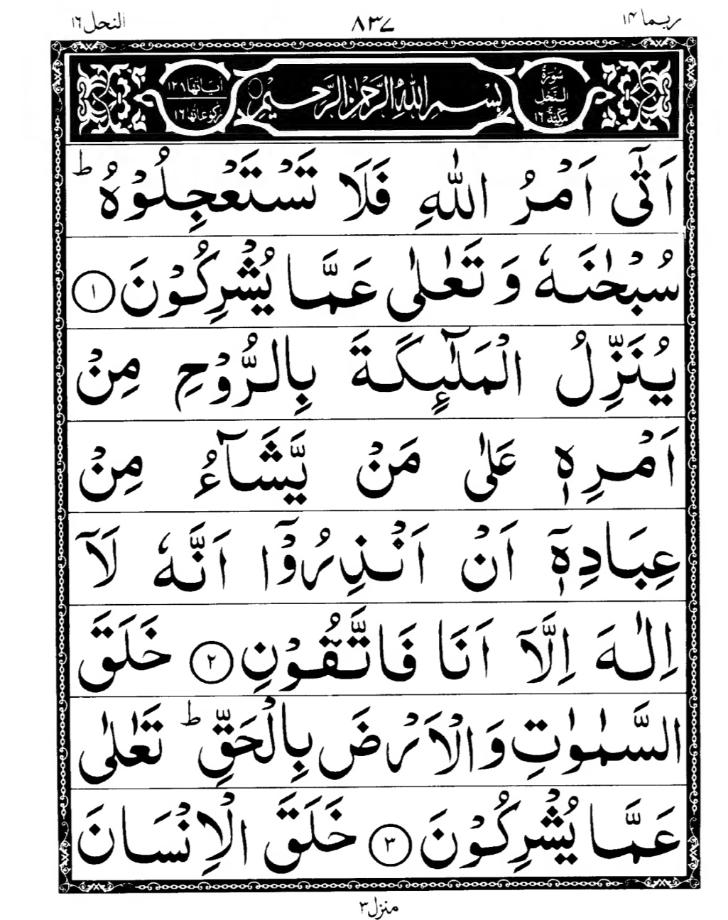 ربما ١٤
٨٣٧
النحل ١٦
سُوْرَةُ النَّحْلِ مَكِّيَّةٌ ١٦
بِسْمِ اللّٰهِ الرَّحْمٰنِ الرَّحِيْمِ
اٰيَاتُهَا ١٢٨
رُكُوْعَاتُهَا ١٦
اَتٰٓى اَمْرُ اللّٰهِ فَلَا تَسْتَعْجِلُوْهُ ؕ
سُبْحٰنَهٗ وَ تَعٰلٰى عَمَّا يُشْرِكُوْنَ ١
يُنَزِّلُ الْمَلٰٓئِكَةَ بِالرُّوْحِ مِنْ
اَمْرِهٖ عَلٰى مَنْ يَّشَآءُ مِنْ
عِبَادِهٖٓ اَنْ اَنْذِرُوْٓا اَنَّهٗ لَاۤ
اِلٰهَ اِلَّاۤ اَنَا فَاتَّقُوْنِ ٢ خَلَقَ
السَّمٰوٰتِ وَالْاَرْضَ بِالْحَقِّ ؕ تَعٰلٰى
عَمَّا يُشْرِكُوْنَ ٣ خَلَقَ الْاِنْسَانَ
منزل ٣